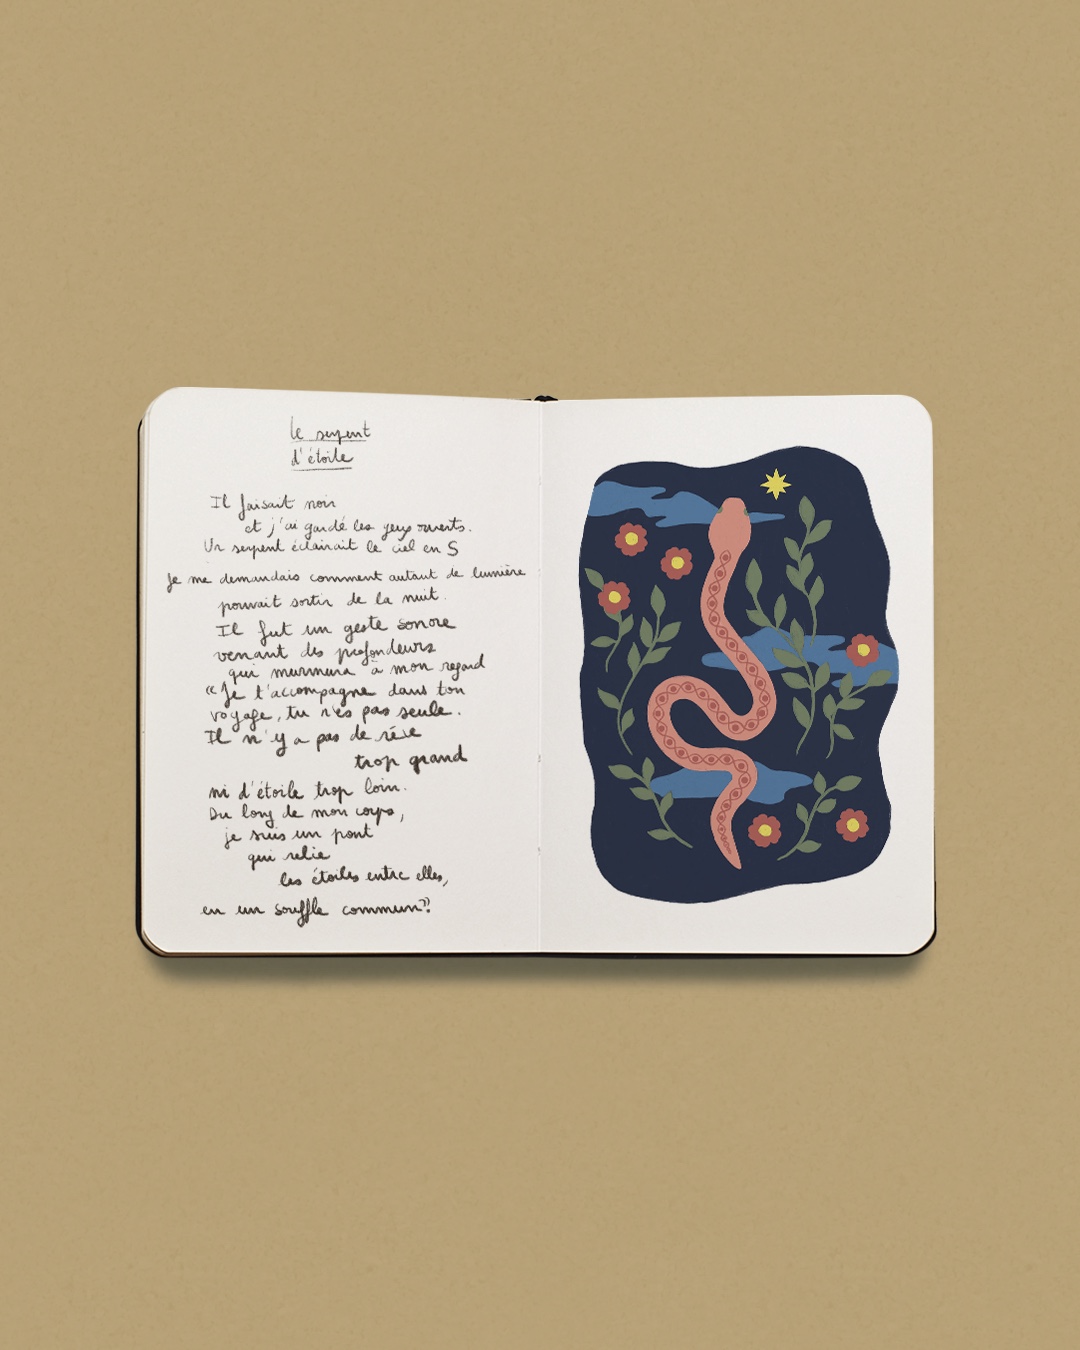 le serpent
d'étoile
Il faisait noir
et j'ai gardé les yeux ouverts.
Un serpent éclairait le ciel en S
Je me demandais comment autant de lumière
pouvait sortir de la nuit.
Il fut un geste sonore
venant des profondeurs
qui murmura à mon regard
"Je t'accompagne dans ton
voyage, tu n'es pas seule.
Il n'y a pas de rêve
trop grand
ni d'étoile trop loin.
Du long de mon corps,
je suis un pont
qui relie
les étoiles entre elles,
en un souffle commun".